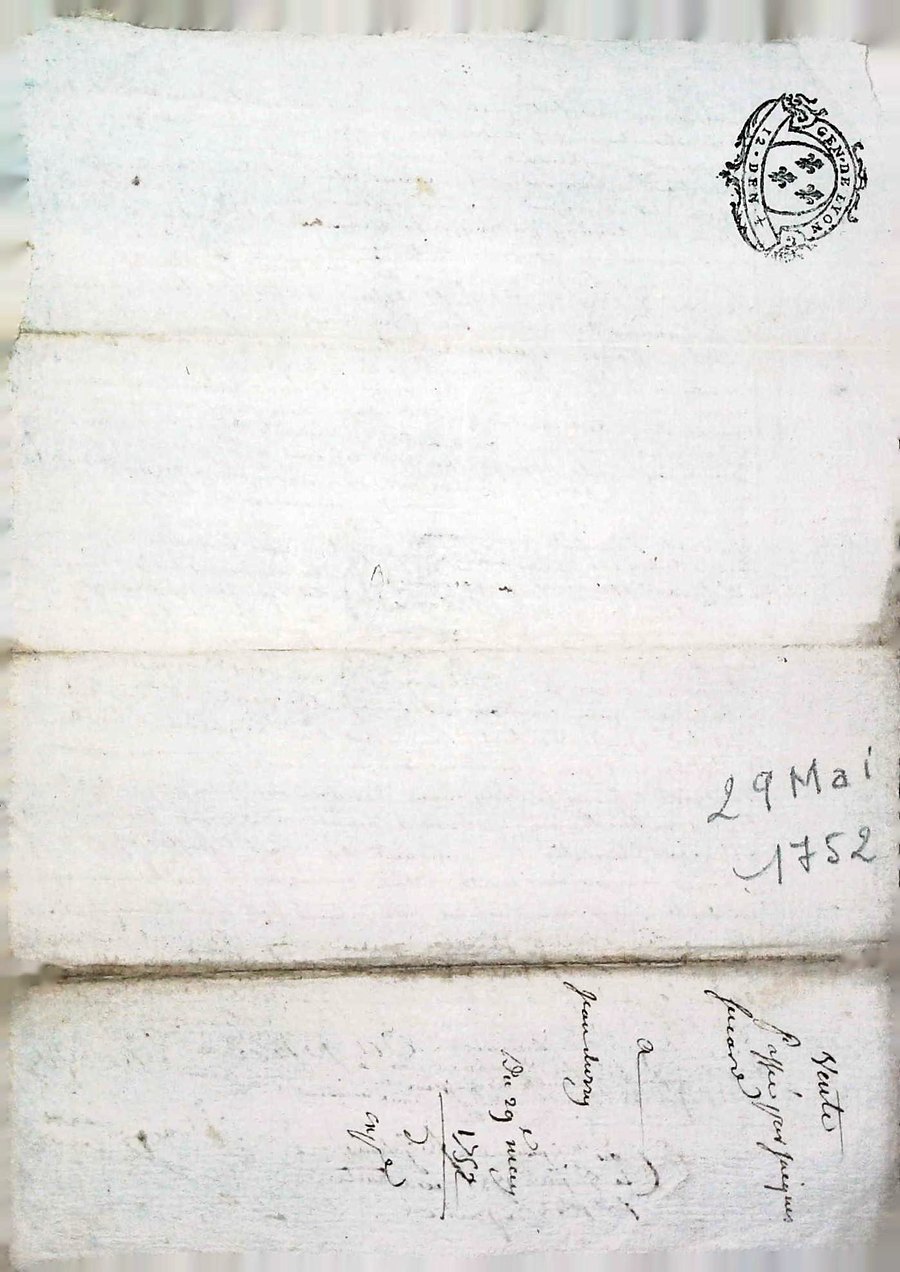 GEN · DE LYON
12 · DEN
29 Mai
1752
Vente
passé par jacques
a
Jean
Du 29e may
1752